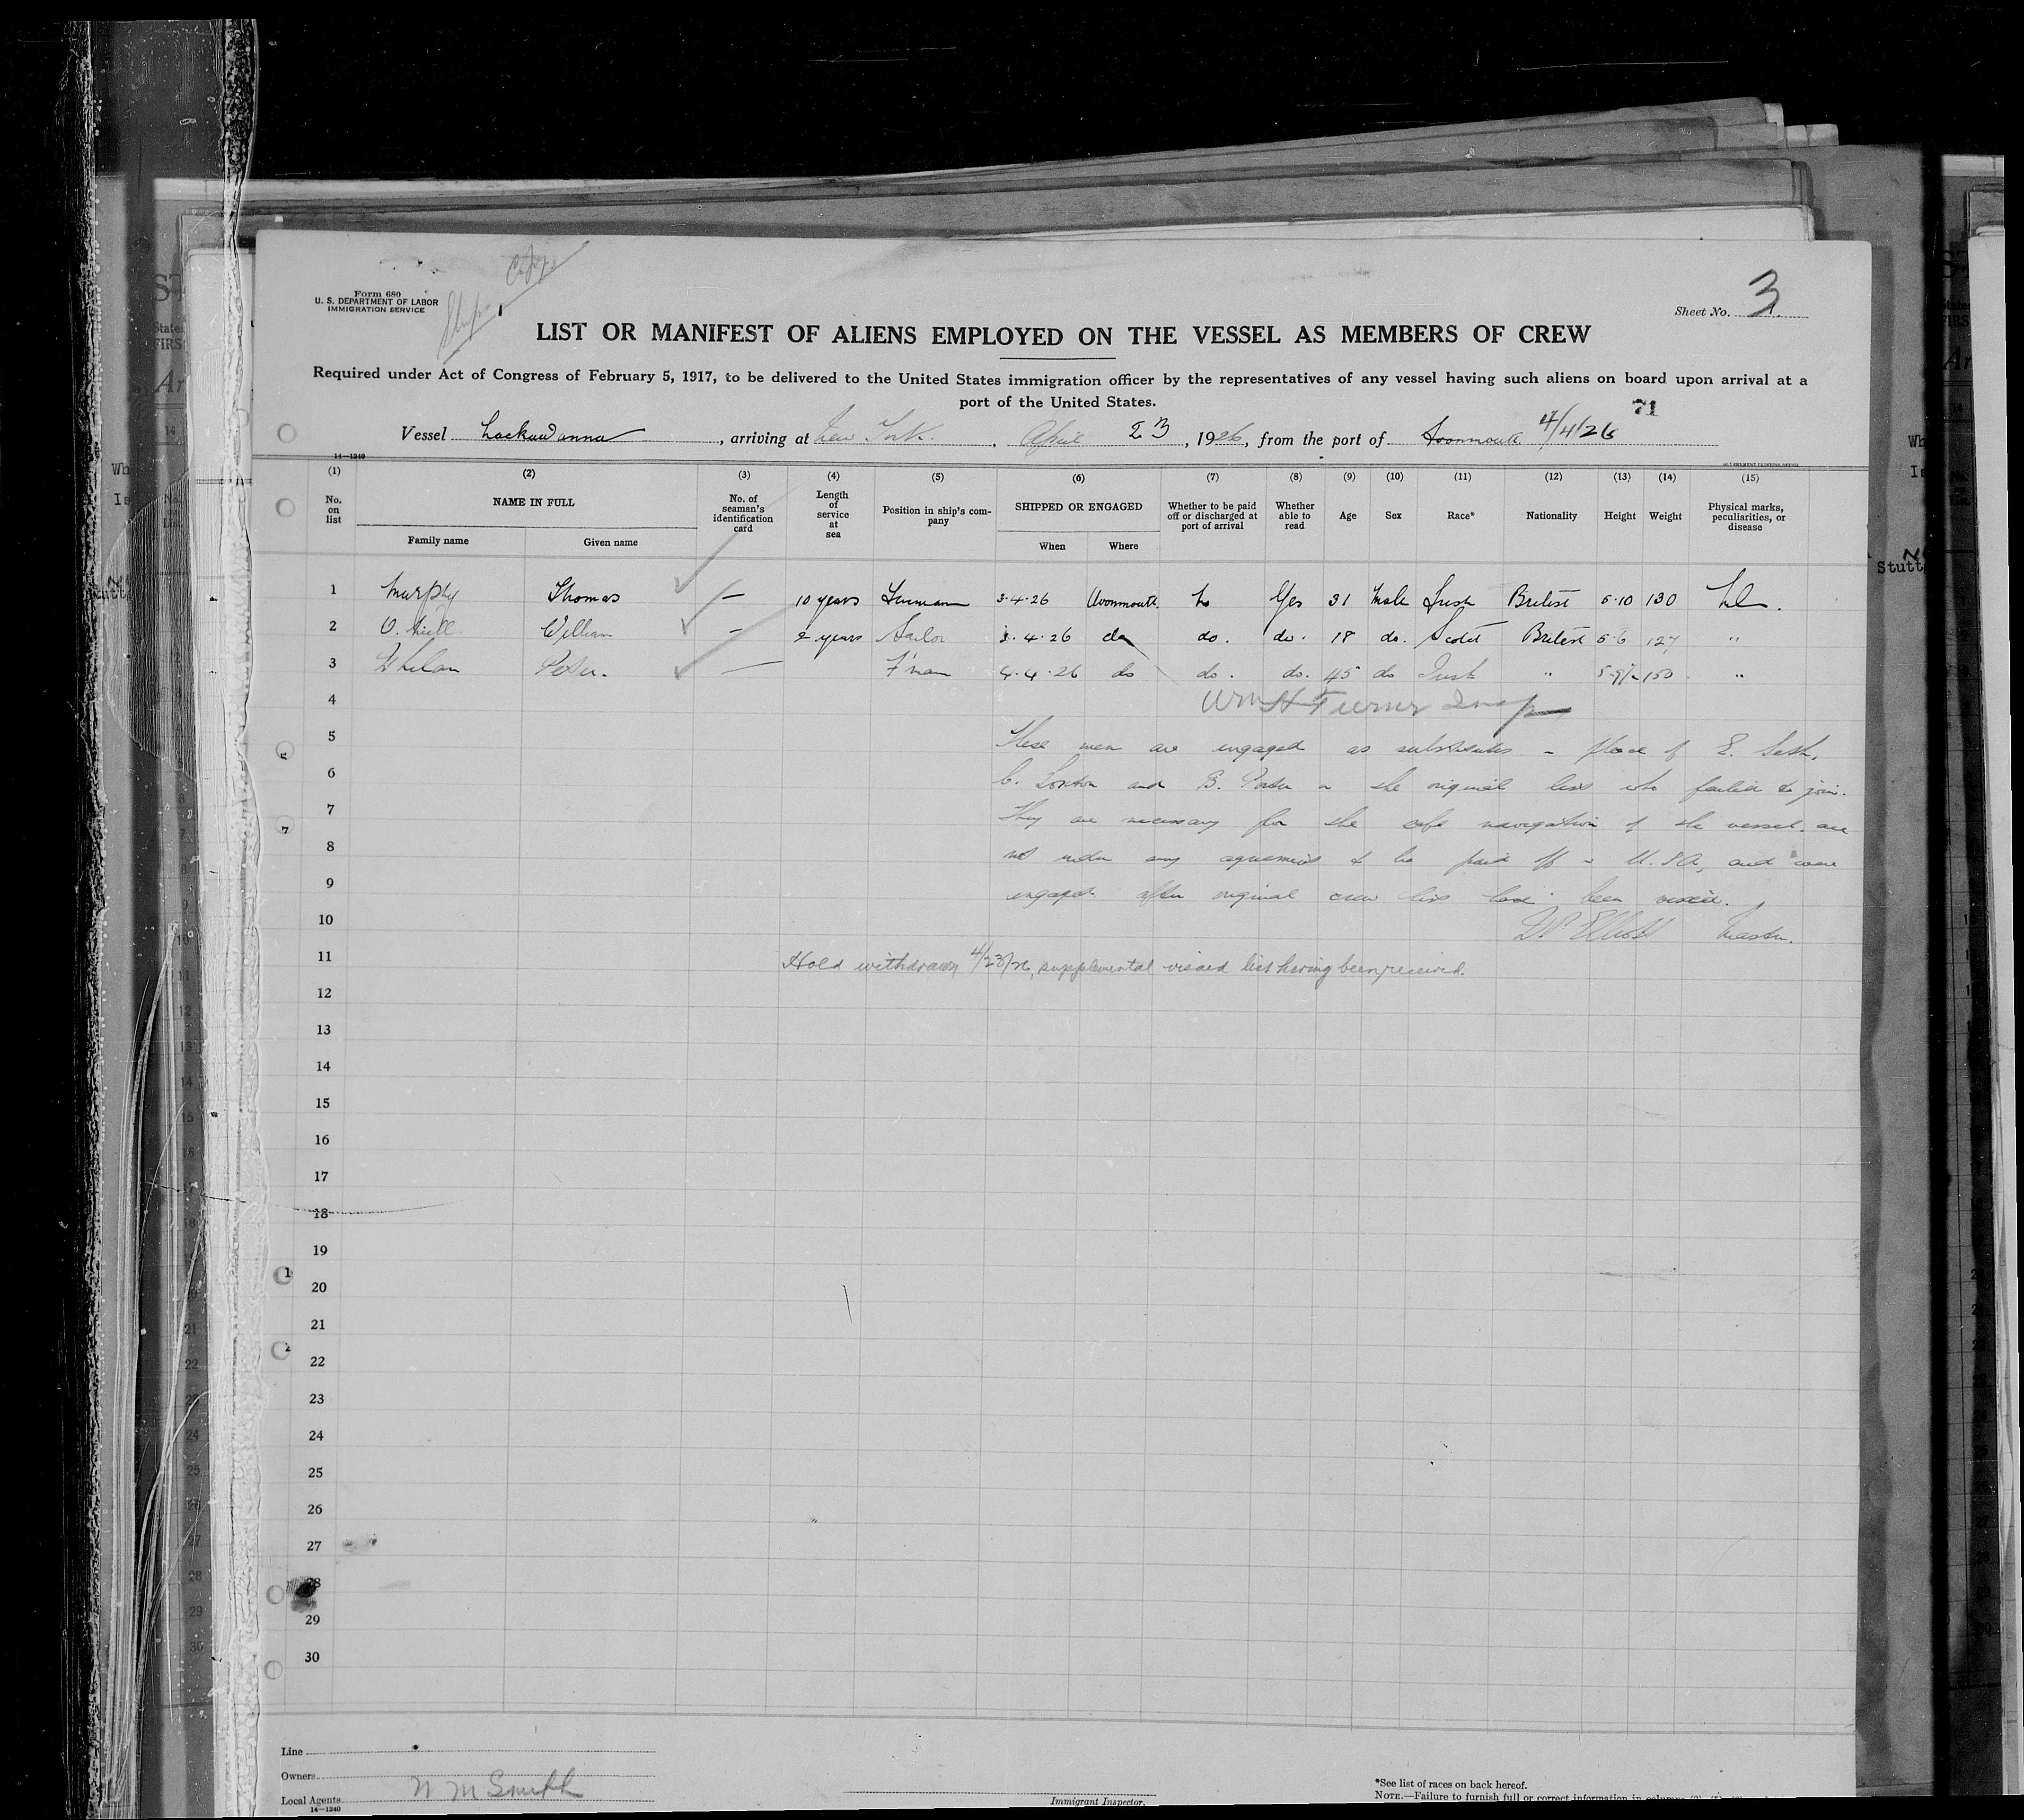 Form 680
U. S. DEPARTMENT OF LABOR
IMMIGRATION SERVICE
Copy
Sheet No. 3
LIST OR MANIFEST OF ALIENS EMPLOYED ON THE VESSEL AS MEMBERS OF CREW
Required under Act of Congress of February 5, 1917, to be delivered to the United States immigration officer by the representatives of any vessel having such aliens on board upon arrival at a
port of the United States.
71
Vessel Lackawanna, arriving at New York, April 23, 1926, from the port of Avonmouth 4/4/26
14—1240
(1) (2) (3) (4) (5) (6) (7) (8) (9) (10) (11) (12) (13) (14) (15)
No. on list NAME IN FULL No. of seaman's identification card Length of service at sea Position in ship's company SHIPPED OR ENGAGED Whether to be paid off or discharged at port of arrival Whether able to read Age Sex Race* Nationality Height Weight Physical marks, peculiarities, or disease
Family name Given name When Where
1 Murphy Thomas — 10 years 3·4·26 Avonmouth No Yes 31 Male Irish British 5·10 130
2 O'Neill William — 2 years Sailor 3·4·26 do do. do. 18 do. Scotch British 5·6 127 "
3 Whelan Peter. — F'man 4·4·26 do do. do. 45 do Irish " 150 "
4 Wm H Turner Insp
5 These men are engaged as substitutes in place of E.
6 C. and B. Porter on the original list who failed to join.
7 They are necessary for the safe navigation of the vessel, are
8 not under any agreement to be paid off in U.S.A, and were
9 engaged after original crew list had been visaed.
10 Master.
11 Hold withdrawn 4/23/26, supplemental visaed list having been received.
12
13
14
15
16
17
18
19
20
21
22
23
24
25
26
27
28
29
30
Line
Owners
Local Agents N M Smith
14—1240
Immigrant Inspector.
*See list of races on back hereof.
NOTE.—Failure to furnish full or correct information in columns